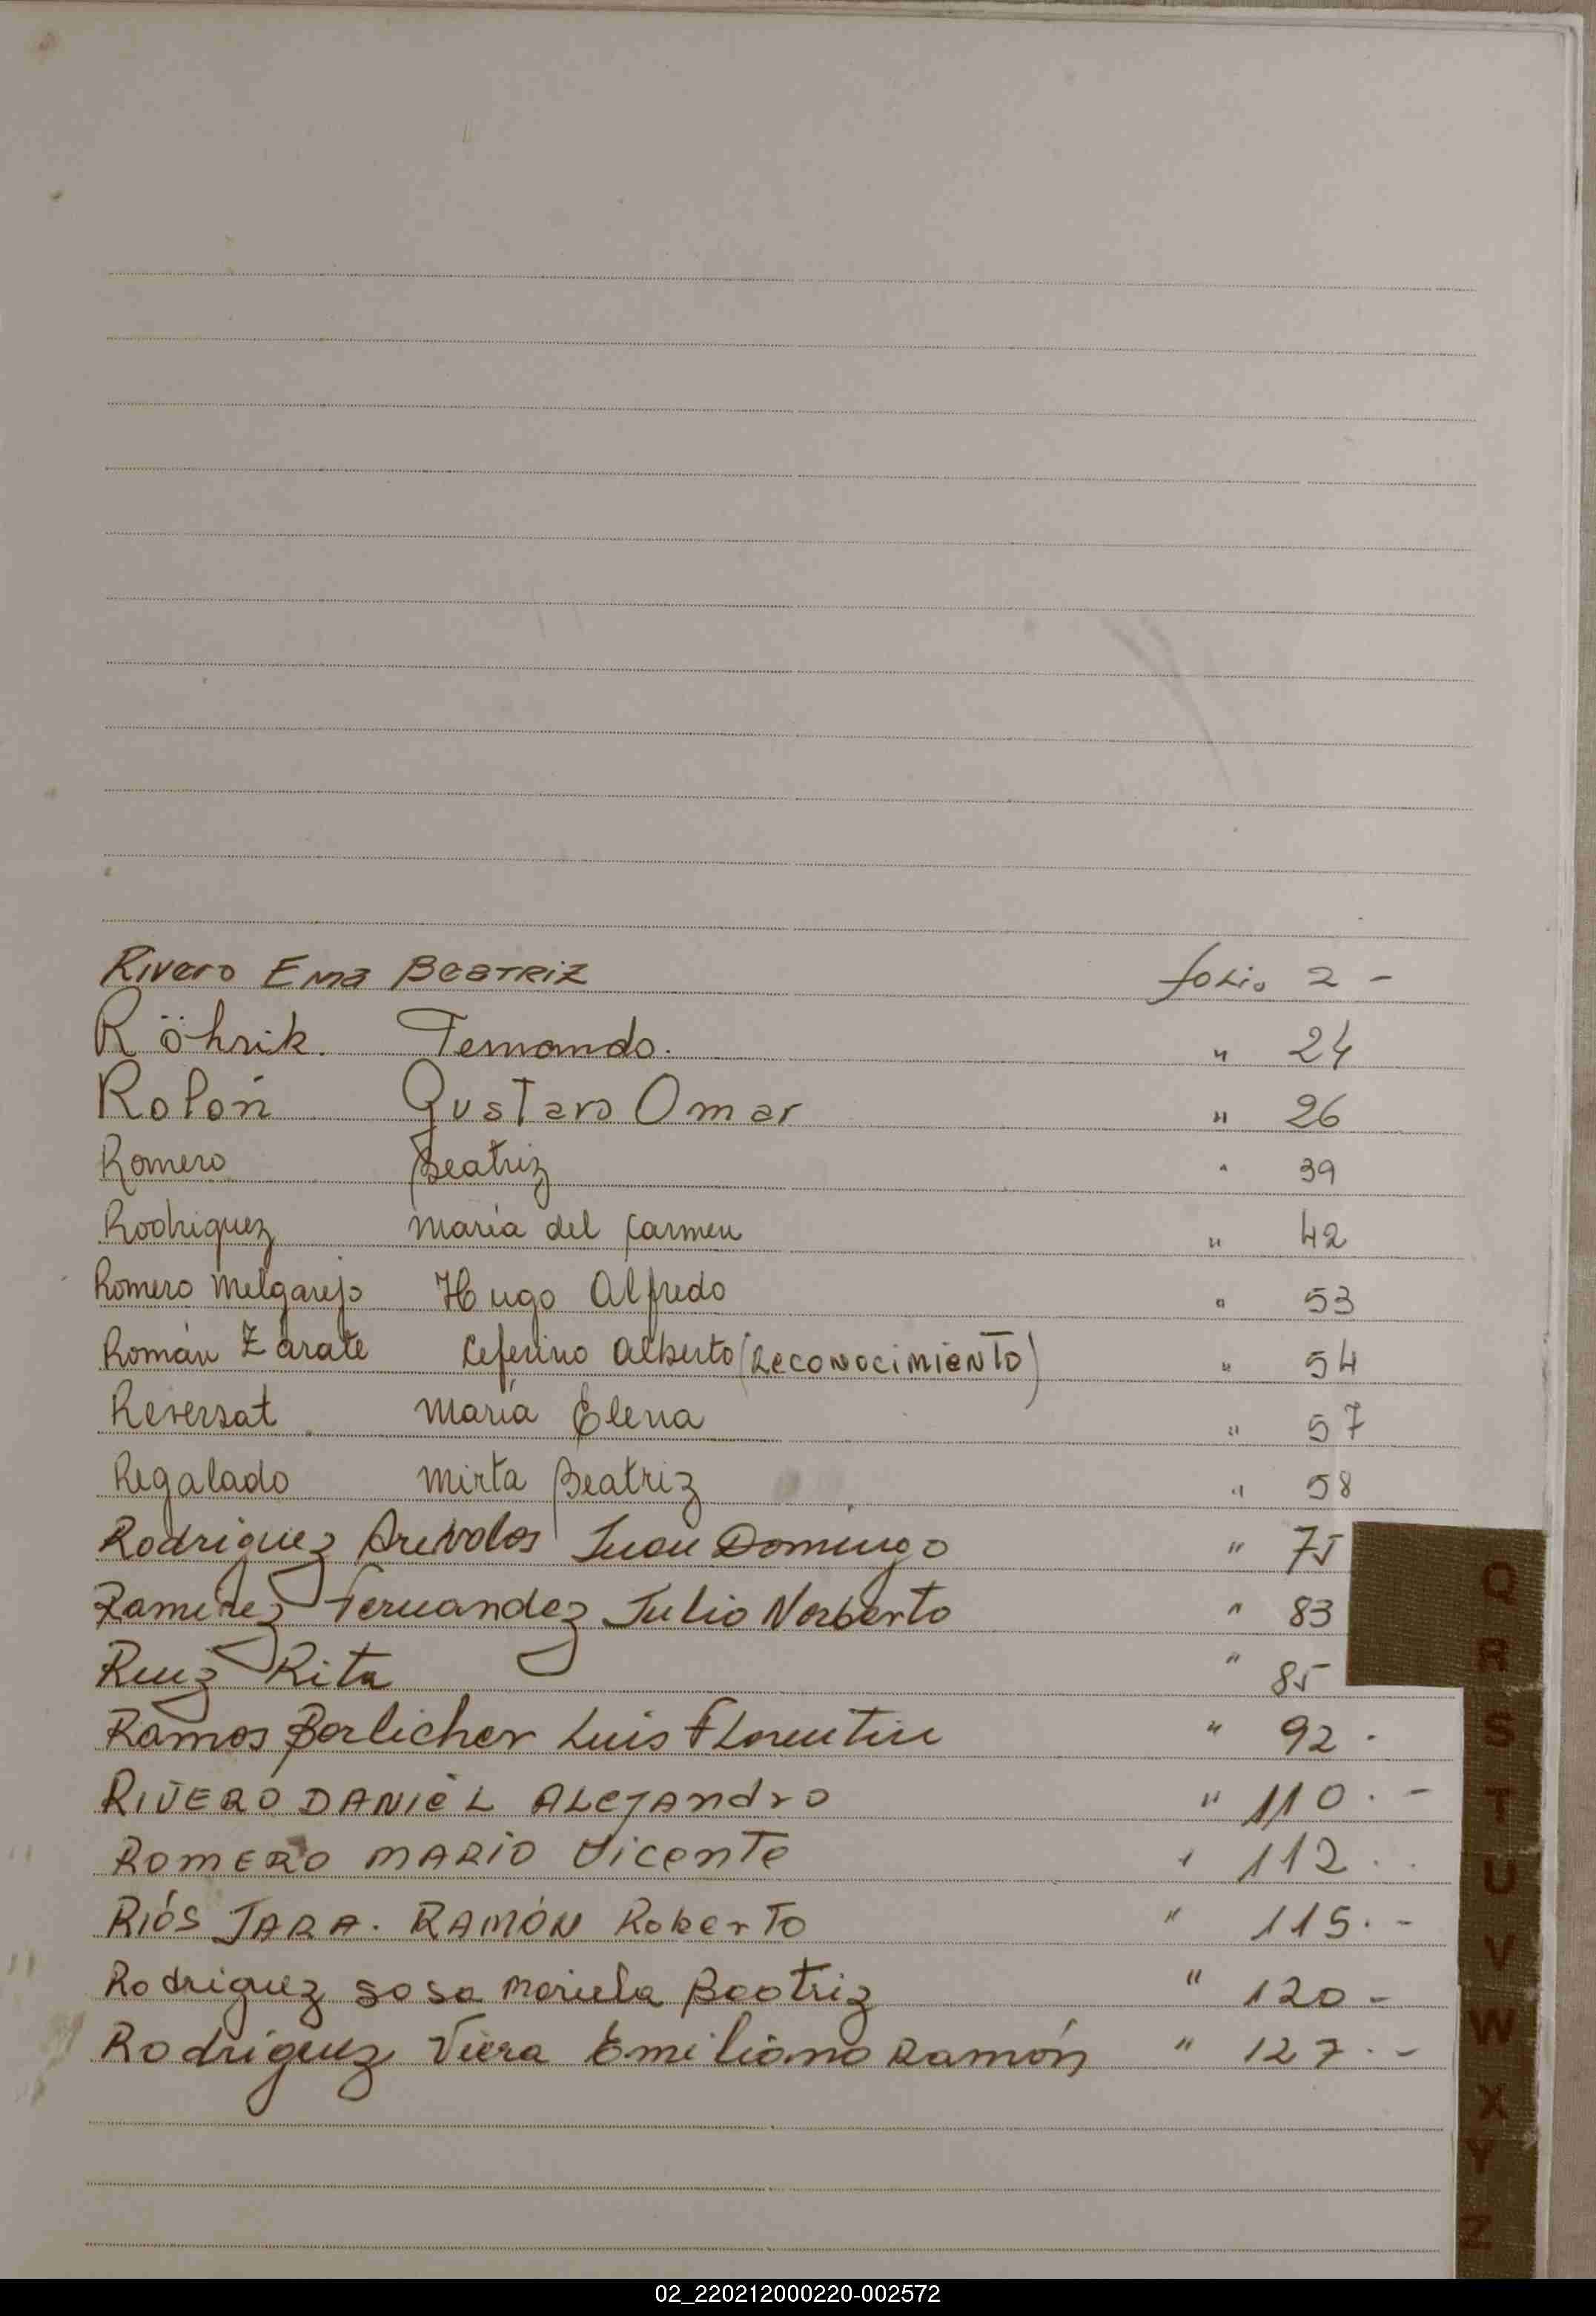 Rivero Ema Beatriz folio 2 -
Röhrik. Fernando. " 24
Rolón Gustavo Omar " 26
Romero Beatriz " 39
Rodriguez María del Carmen " 42
Romero Melgarejo Hugo Alfredo " 53
Román Zárate Ceferino Alberto (Reconocimiento) " 54
Reversat María Elena " 57
Regalado Mirta Beatriz " 58
Rodriguez Arevalos Juan Domingo " 75
Ramirez Fernandez Julio Norberto " 83
Ruiz Rita " 85
Ramos Berlicher Luis Florentin " 92 .
RIVERO DANIEL ALEJANDRO " 110 . -
ROMERO MARIO Vicente " 112 . .
RIÓS JARA. RAMÓN Roberto " 115 . -
Rodriguez Sosa Mariela Beatriz " 120 -
Rodriguez Viera Emiliano Ramón " 127 . -
Q
R
S
T
U
V
W
X
Y
Z
02_220212000220-002572